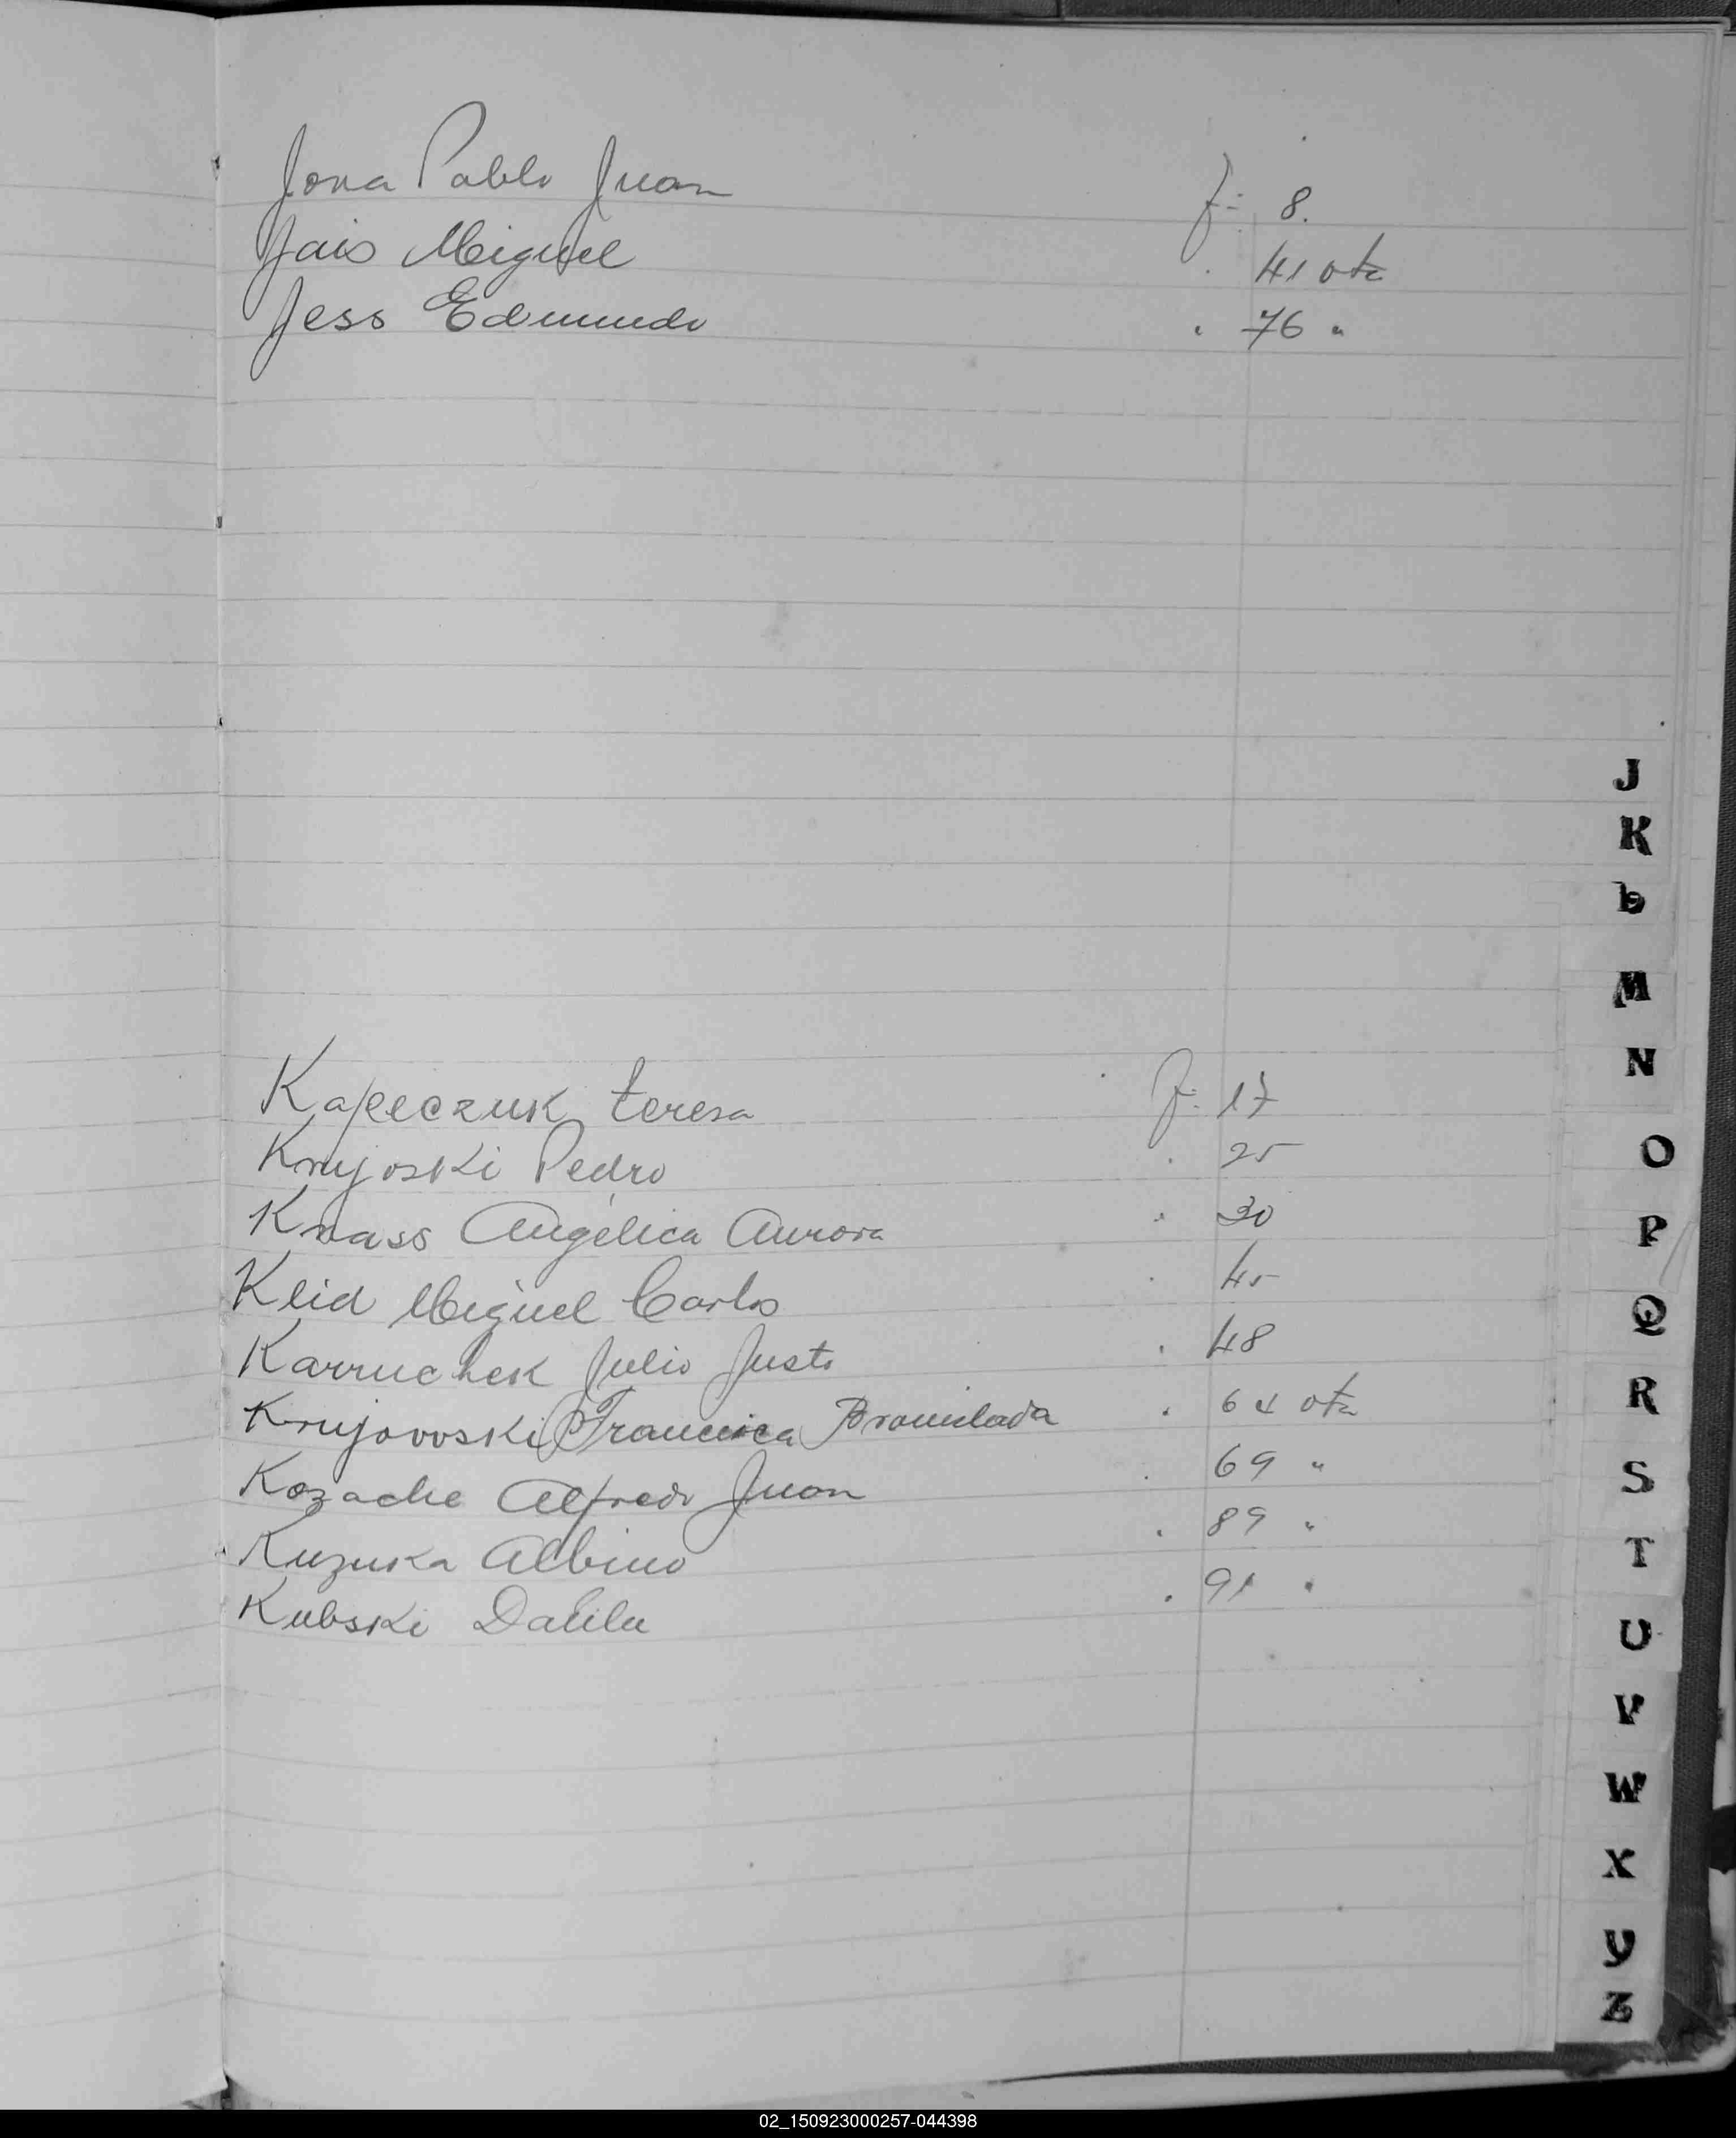 Jona Pablo Juan f= 8.
Jais Miguel . 41 vta
Jess Edmundo " 76 "
J
K
L
M
N
O
P
Q
R
S
T
U
V
W
X
Y
Z
Kapeczuk Teresa f= 17
Knyoski Pedro . 25
Knass Angélica Aurora " 30
Klid Miguel Carlos . 45
Karruchek Julio Justo . 48
Krujovoski Francisca Bronislada . 64 vta
Kozache Alfredo Juan . 69 "
Kuzuka Albino . 89 "
Kubski Dalila . 91 "
02_150923000257-044398